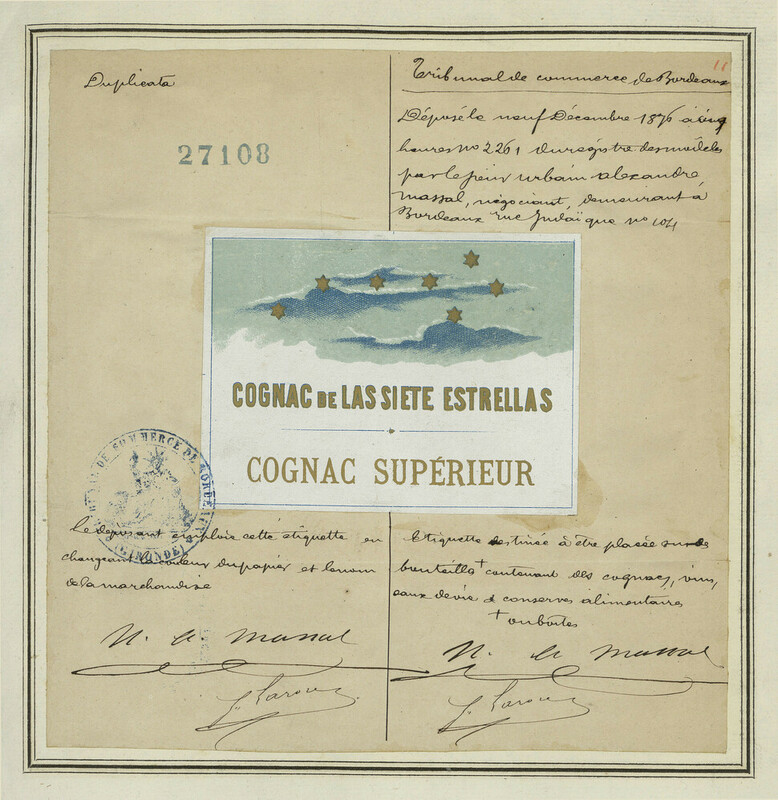 Duplicata
27108
11
Tribunal de commerce de Bordeaux
Déposé le neuf Décembre 1876 à cinq
heures no 2261 du registre des modèles
par le sieur Urbain Alexandre
Massal, négociant, demeurant à
Bordeaux rue Judaïque no 104
COGNAC DE LAS SIETE ESTRELLAS
COGNAC SUPÉRIEUR
DE COMMERCE DE BORDEAUX
(GIRONDE)
le déposant emploie cette étiquette en
changeant la couleur du papier et le nom
de la marchandise
Etiquette destinée à être placée sur des
bouteilles + contenant des cognacs, vins,
eaux de vie & conserves alimentaires
+ ou boîtes
Massal
Massal